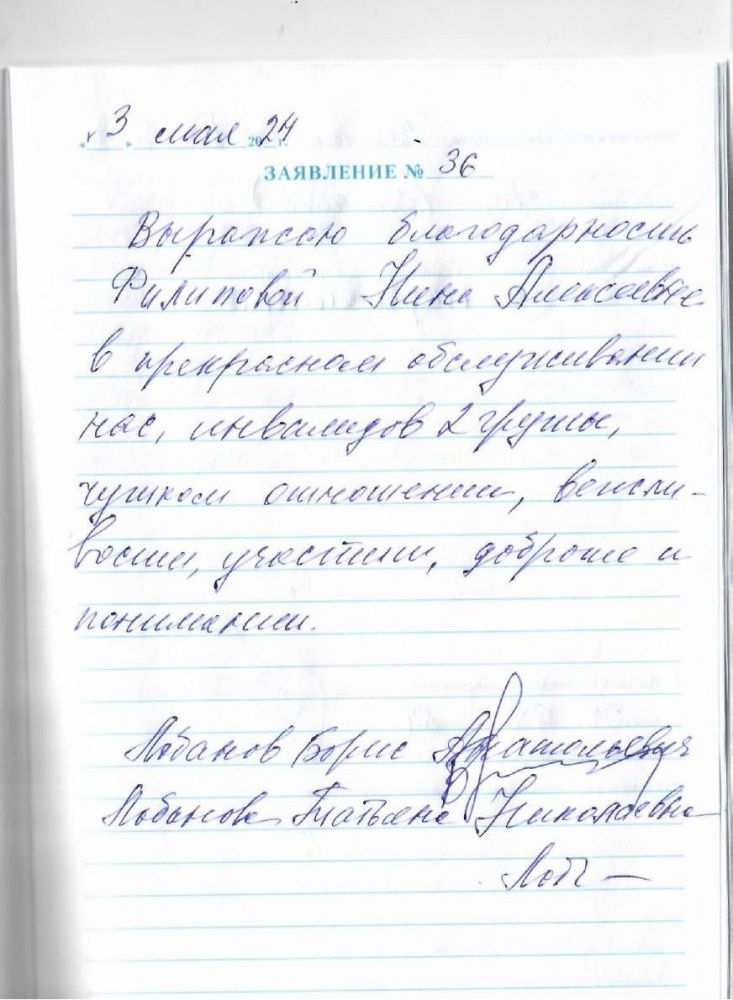 «3» мая 2024 г.
ЗАЯВЛЕНИЕ № 36
Выражаю благодарность
Филиповой Нине Алексеевне
в прекрасном обслуживании
нас, инвалидов 2 групы,
чутком отношении, вежли-
вости, участии, доброте и
понимании.
Лобанов Борис Анатольевич
Лобанова Татьяна Николаевна
Лоб